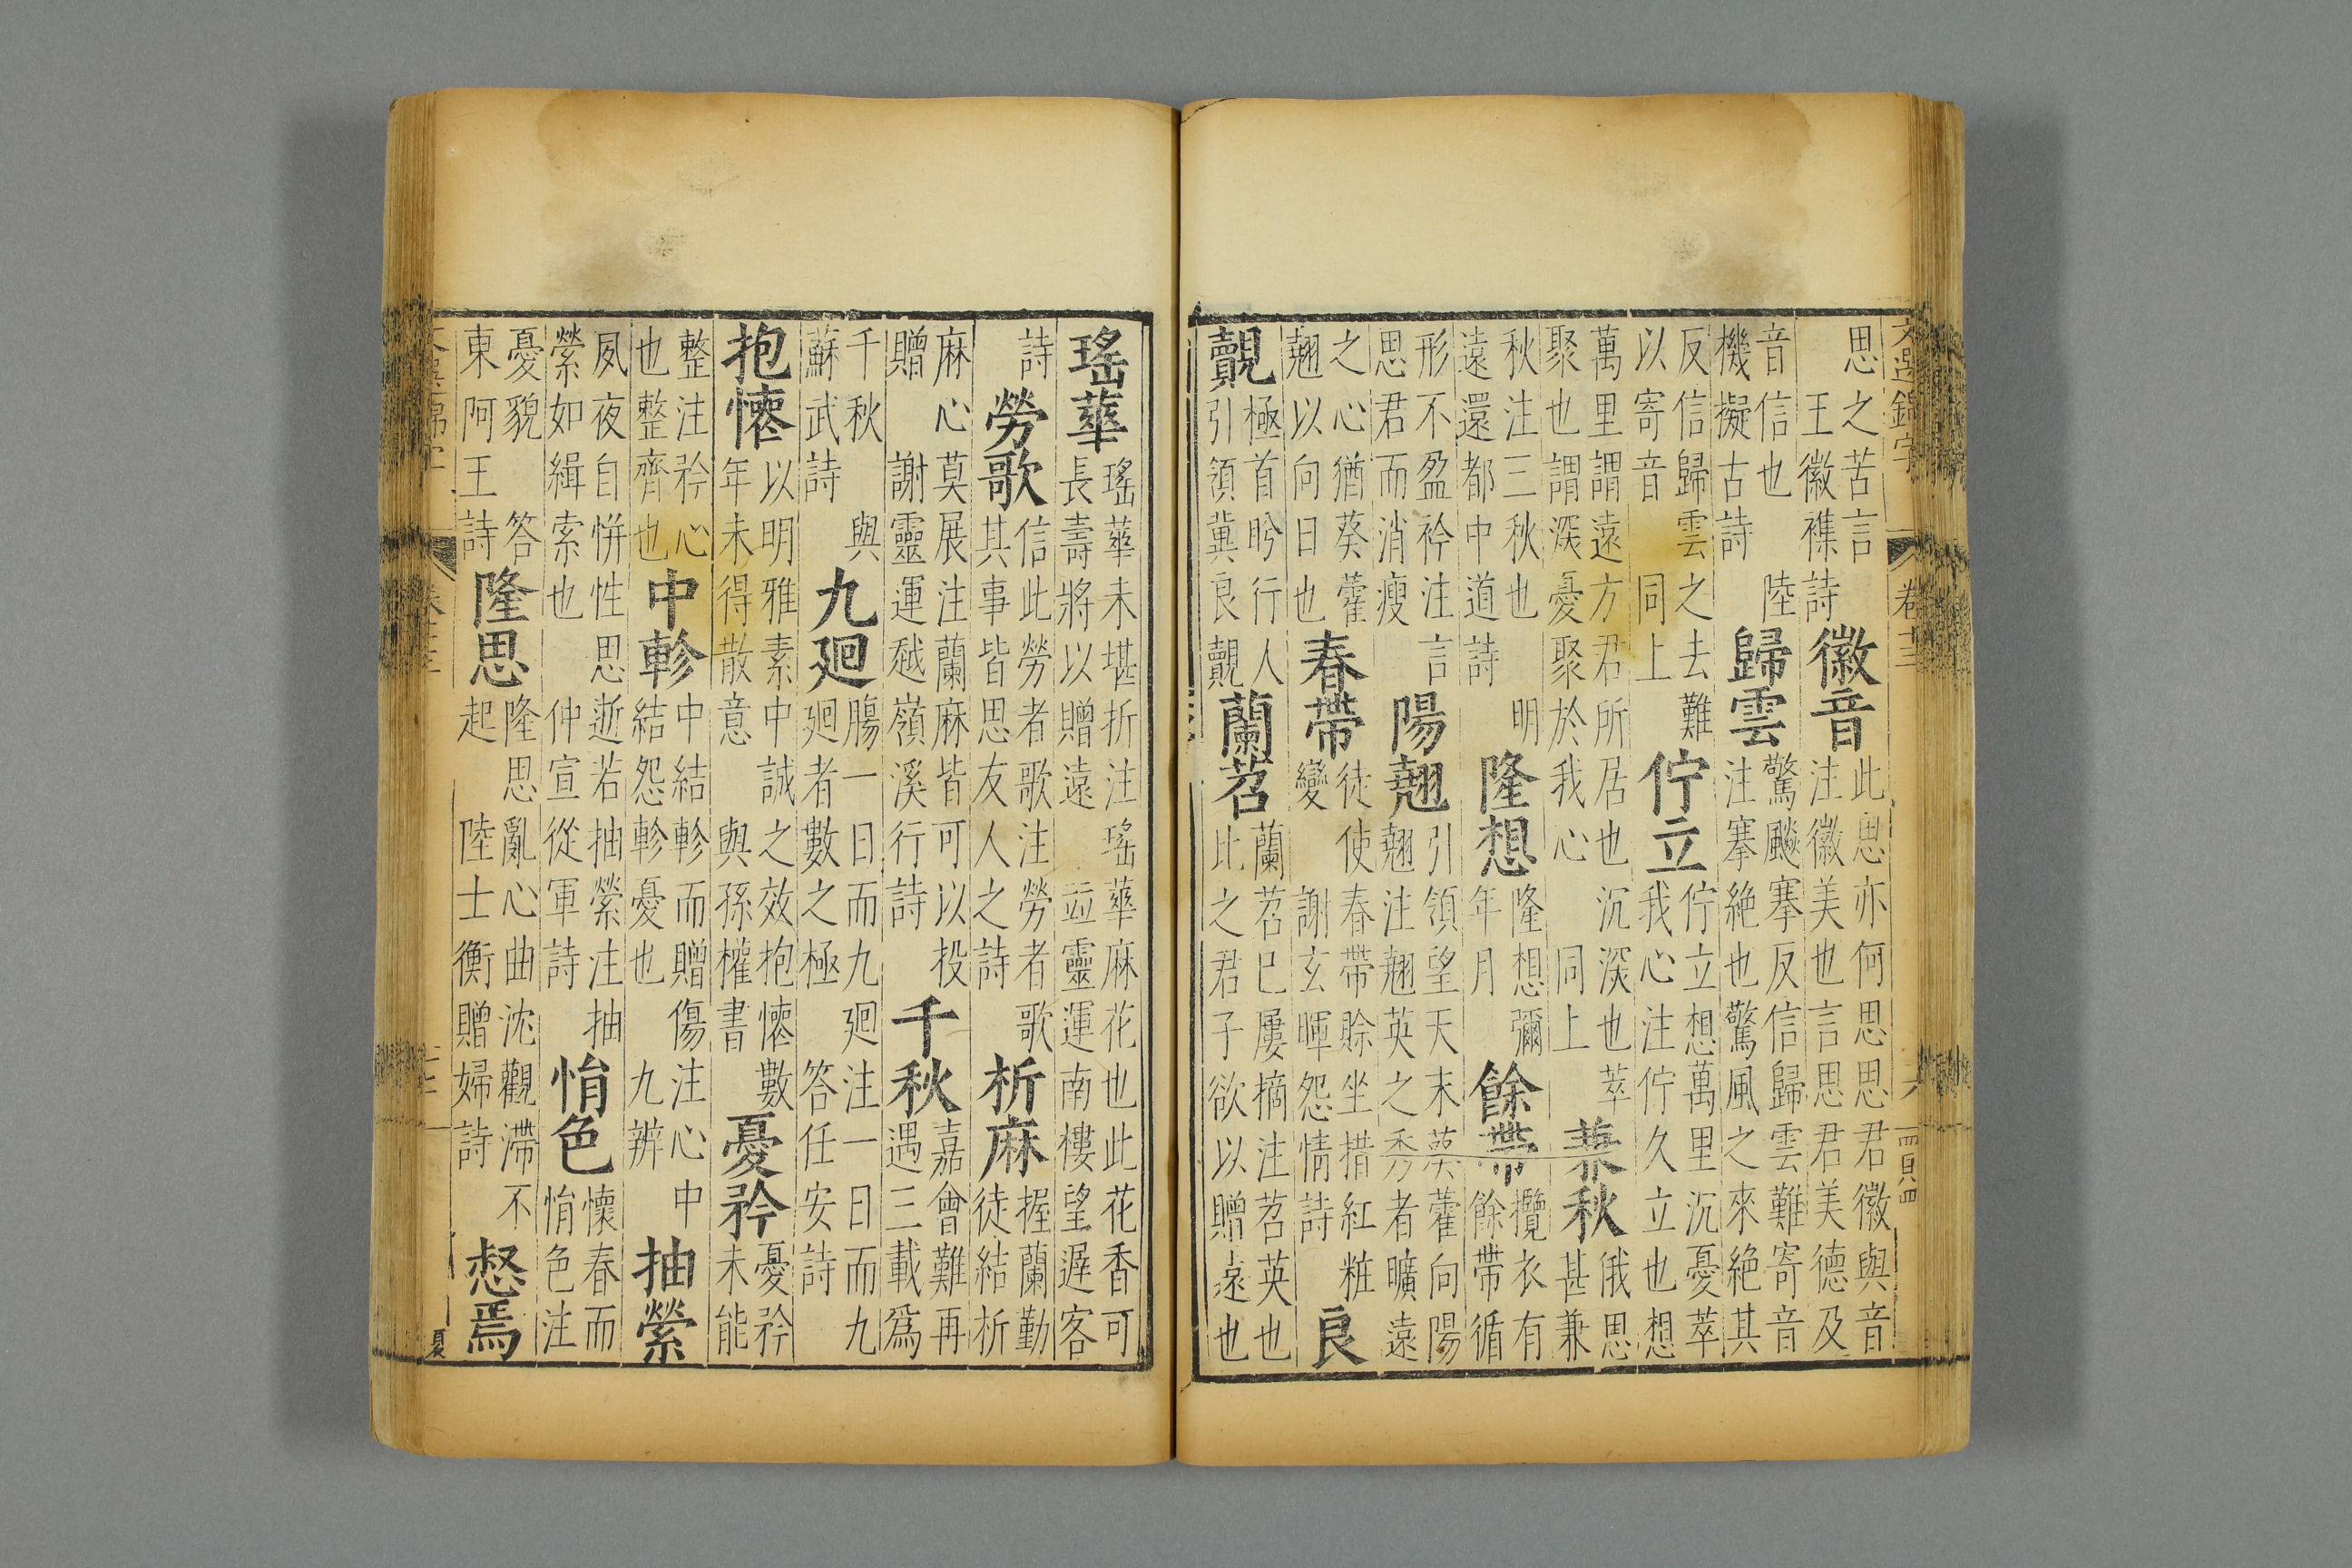 文選錦字 卷十三 六 四百四
思之苦言
王徽襍詩
徽音
此思亦何思思君徽與音
注徽美也言思君美德及
音信也 陸
機擬古詩
歸雲
驚飈褰反信歸雲難寄音
注褰絶也驚風之來絶其
反信歸雲之去難
以寄音 同上
佇立
佇立想萬里沉憂萃
我心注佇久立也想
萬里謂遠方君所居也沉深也萃
聚也謂深憂聚於我心 同上
兼秋
俄思
甚兼
秋注三秋也 明
遠還都中道詩
隆想
隆想彌
年月
餘帶
攬衣有
餘帶循
形不盈衿注言
思君而消瘦
陽翹
引領望天末 藿向陽
翹注翹英之秀者曠遠
之心猶葵藿
翹以向日也
春帶
徒使春帶賒坐惜紅粧
變 謝玄暉怨情詩
良
覿
極首眄行人
引領冀良覿
蘭苕
蘭苕已屢摘注苕英也
此之君子欲以贈遠也
瑤華
瑤華未堪折注瑤華麻花也此花香可
長壽將以贈遠 竝靈運南樓望遲客
詩
勞歌
信此勞者歌注勞者歌
其事皆思友人之詩
析麻
握蘭勤
徒結析
麻心莫展注蘭麻皆可以投
贈 謝靈運越嶺溪行詩
千秋
嘉會難再
遇三載爲
千秋 與
蘇武詩
九廻
膓一日而九廻注一日而九
廻者數之極 答任安詩
抱懷
以明雅素中誠之效抱懷數
年未得散意 與孫權書
憂矜
憂矜
未能
整注矜心
也整齊也
中軫
中結軫而贈傷注心中
結怨軫憂也 九辨
抽縈
夙夜自恲性思逝若抽縈注抽
縈如緝索也 仲宣從軍詩
悁色
懷春而
悁色注
憂貌 答
東阿王詩
隆思
隆思亂心曲沈觀滯不
起 陸士衡贈婦詩
惄焉
夏